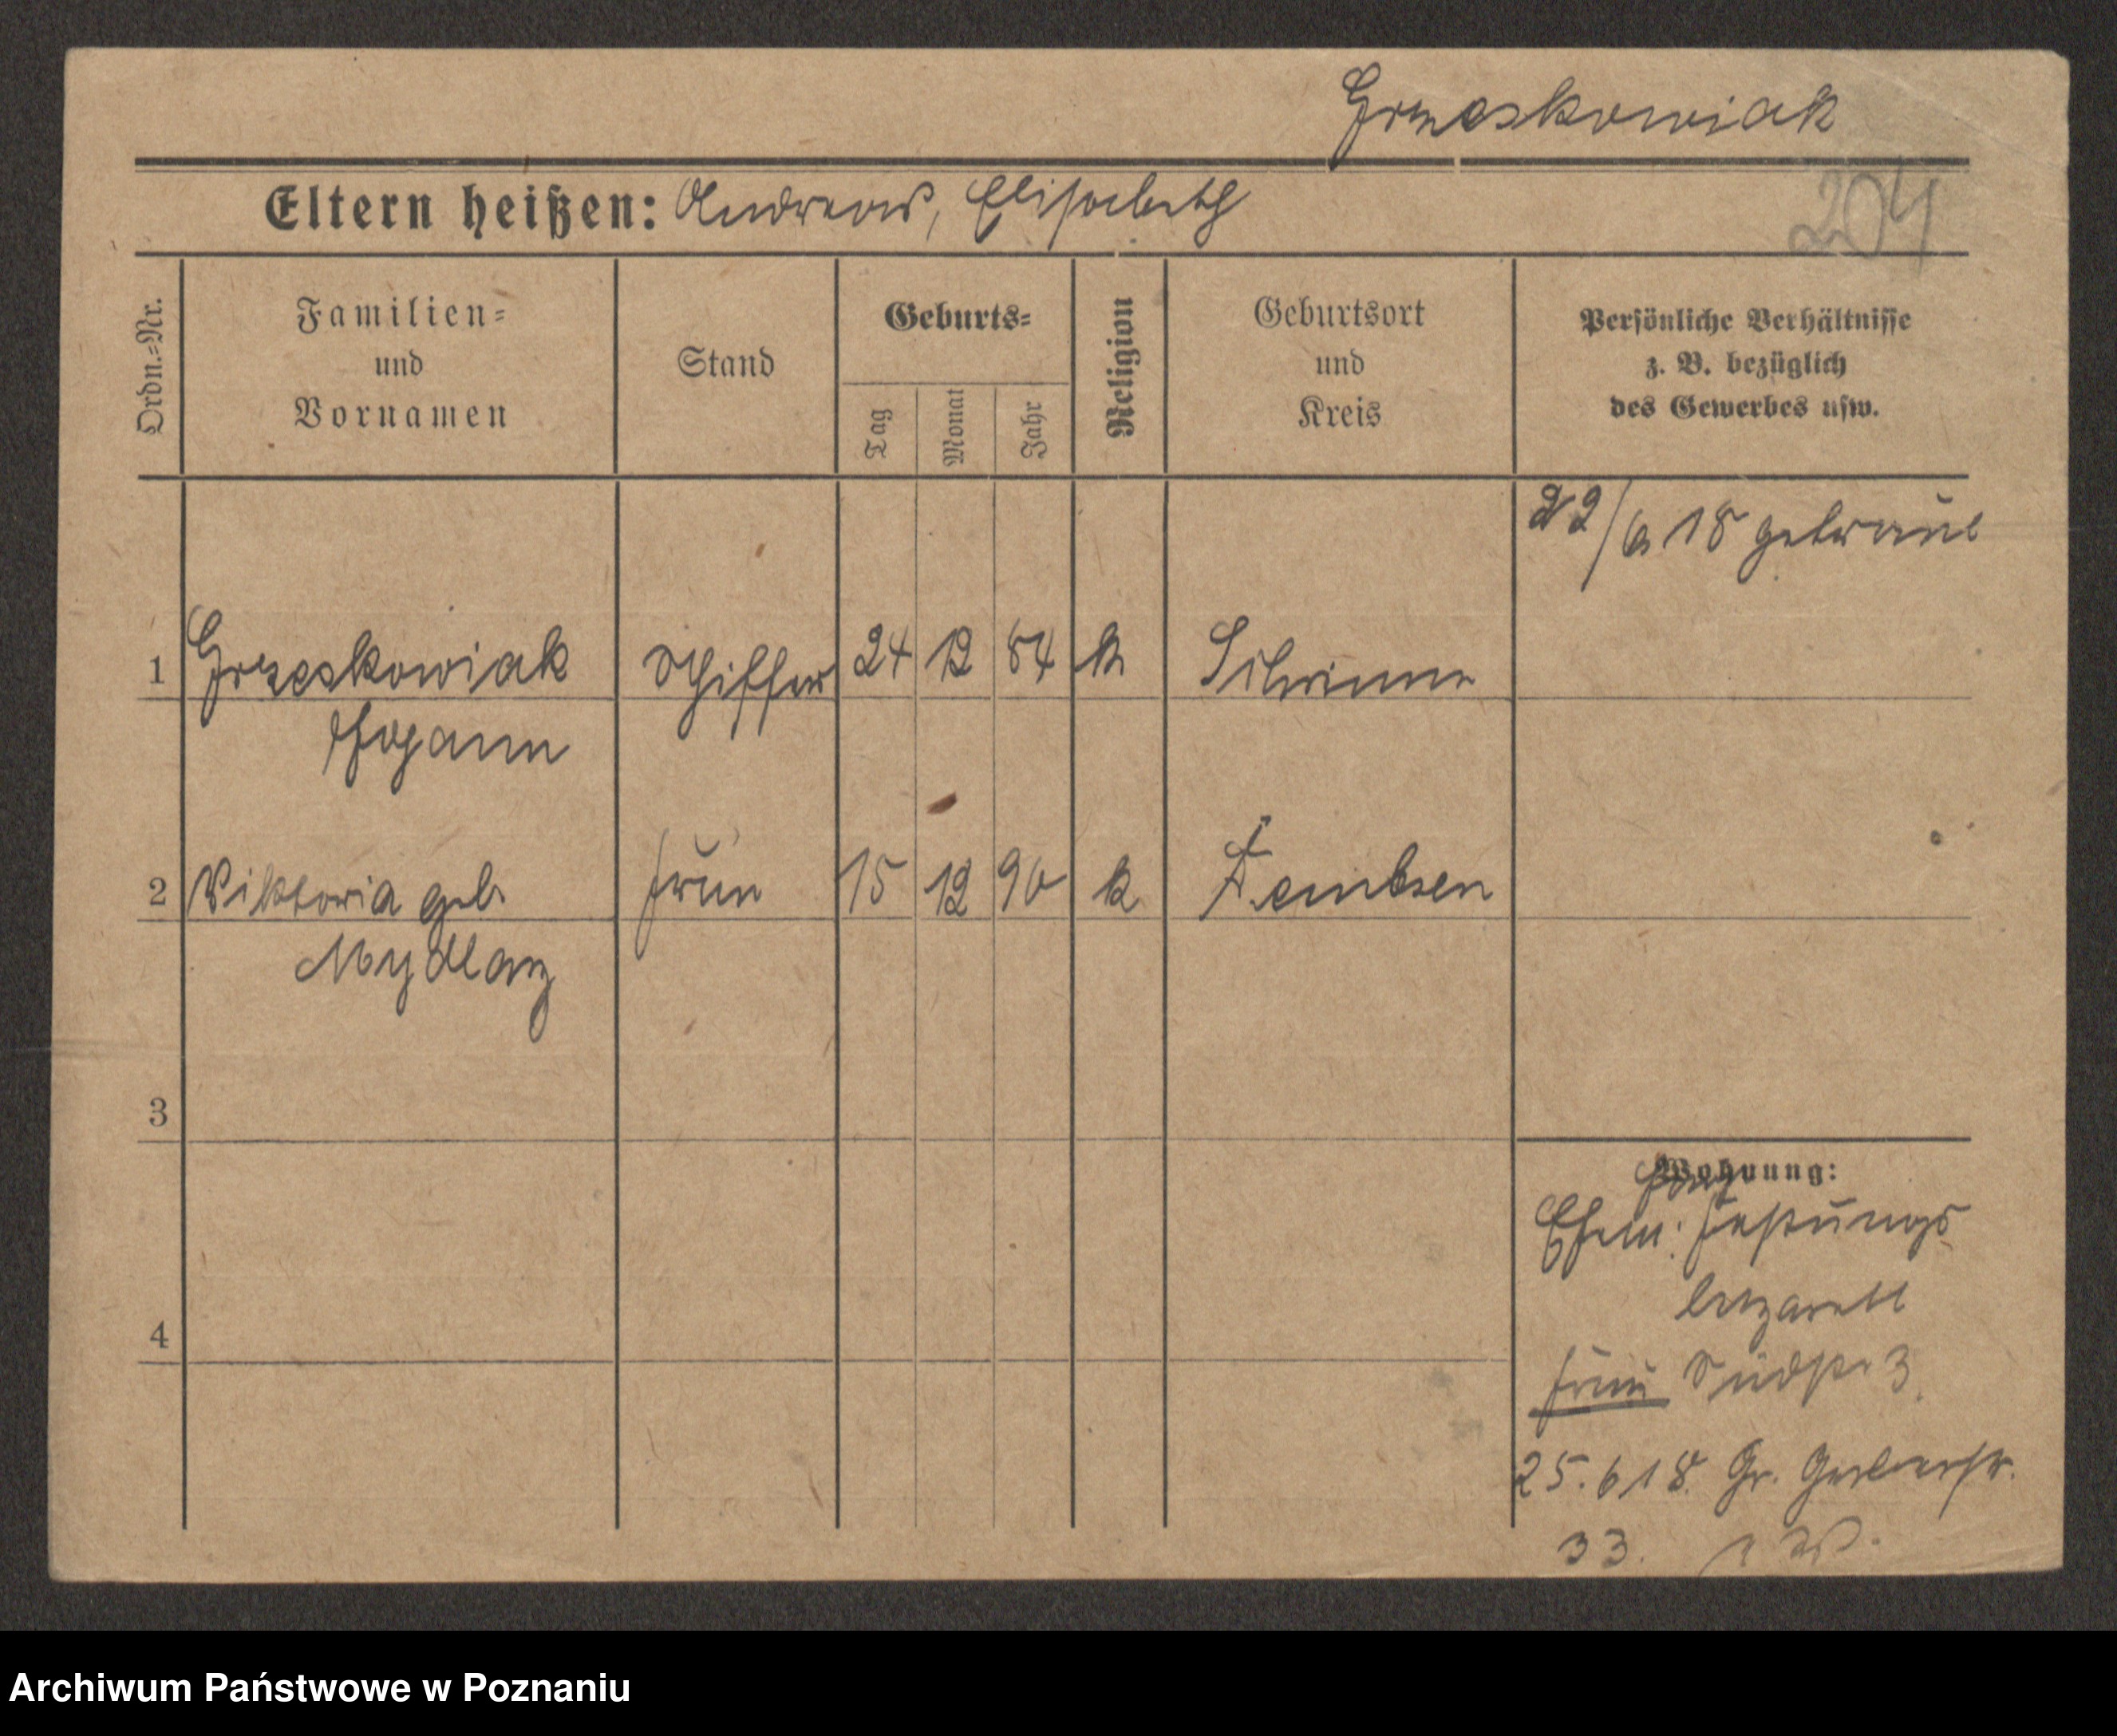 Grzeskowiak
Eltern heißen: Andreas, Elisabeth
204
Ordn.=Nr.
Familien=
und
Vornamen
Stand
Geburts=
Tag
Monat
Jahr
Religion
Geburtsort
und
Kreis
Persönliche Verhältnisse
z. B. bezüglich
des Gewerbes usw.
22/6 18 getraut
1 Grzeskowiak Schiffer 24 12 84 k
Johann
2 Viktoria geb. Frau 15 12 90 k
Mydlarz
3
Wohnung:
Ehem: Festungs
lazarett
4
Frau Südstr 3
25. 6 18. Gr. Gerberstr.
33.
Archiwum Państwowe w Poznaniu